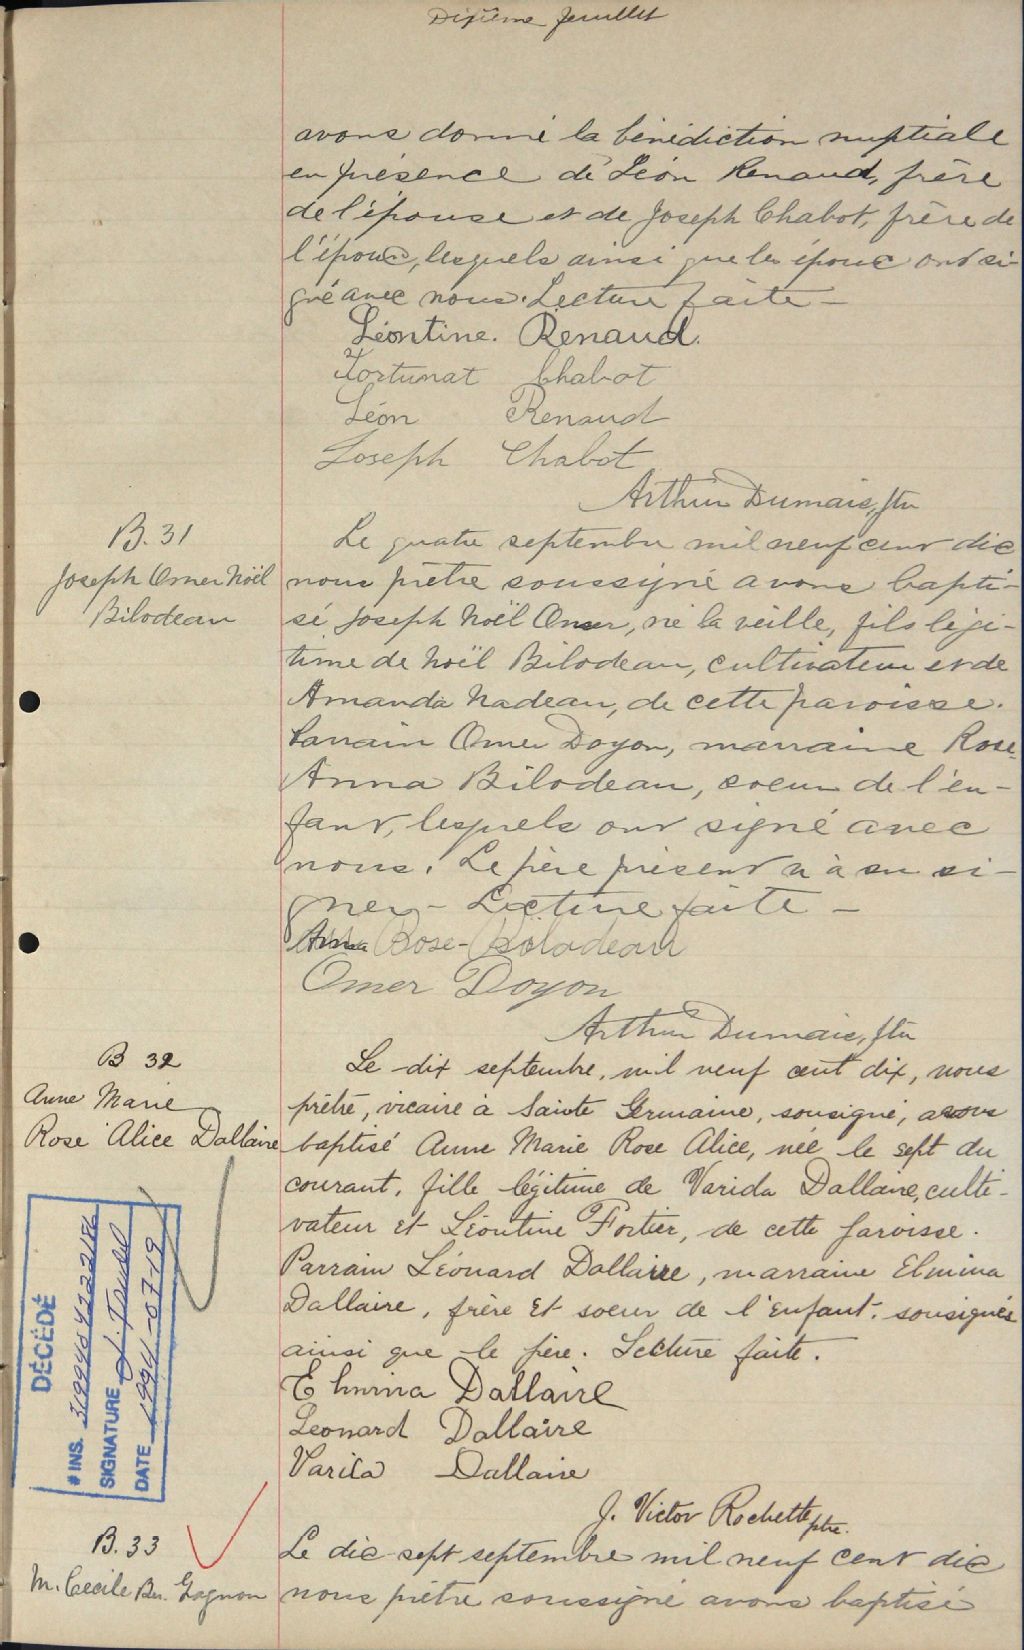 Dixième feuillet
avons donné la bénédiction nuptiale
en présence de Léon Renaud, frère
de l'épouse et de Joseph Chabot, frère de
l'époux, lesquels ainsi que les époux ont si-
gné avec nous. Lecture faite –
Léontine. Renaud.
Fortunat Chabot
Léon Renaud
Joseph Chabot
Arthur Dumais, ptre
B. 31
Joseph Omer Noël
Bilodeau
Le quatre septembre mil neuf cent dix
nous prêtre soussigné avons bapti-
sé Joseph Noël Omer, né la veille, fils légi-
time de Noël Bilodeau, cultivateur et de
Amanda Nadeau, de cette paroisse.
Parrain Omer Doyon, marraine Rose-
Anna Bilodeau, soeur de l'en-
fant, lesquels ont signé avec
nous. Le père présent n'a su si-
gner – Lecture faite –
Anna Rose-Bilodeau
Omer Doyon
Arthur Dumais, ptre
B 32
Anne Marie
Rose Alice Dallaire
Le dix septembre, mil neuf cent dix, nous
prêtre, vicaire à Sainte Germaine, sousigné, avons
baptisé Anne Marie Rose Alice, née le sept du
courant, fille légitime de Varida Dallaire, culti-
vateur et Léontine Fortier, de cette paroisse.
Parrain Léonard Dallaire, marraine Elmina
Dallaire, frère et soeur de l'enfant. sousignés
ainsi que le père. Lecture faite.
Elmina Dallaire
Leonard Dallaire
Varida Dallaire
J. Victor Rochette ptre.
DÉCÉDÉ
# INS.
SIGNATURE
DATE 1994-07-19
B. 33
M. Cecile Ber. Gagnon
Le dix-sept septembre mil neuf cent dix
nous prêtre soussigné avons baptisé